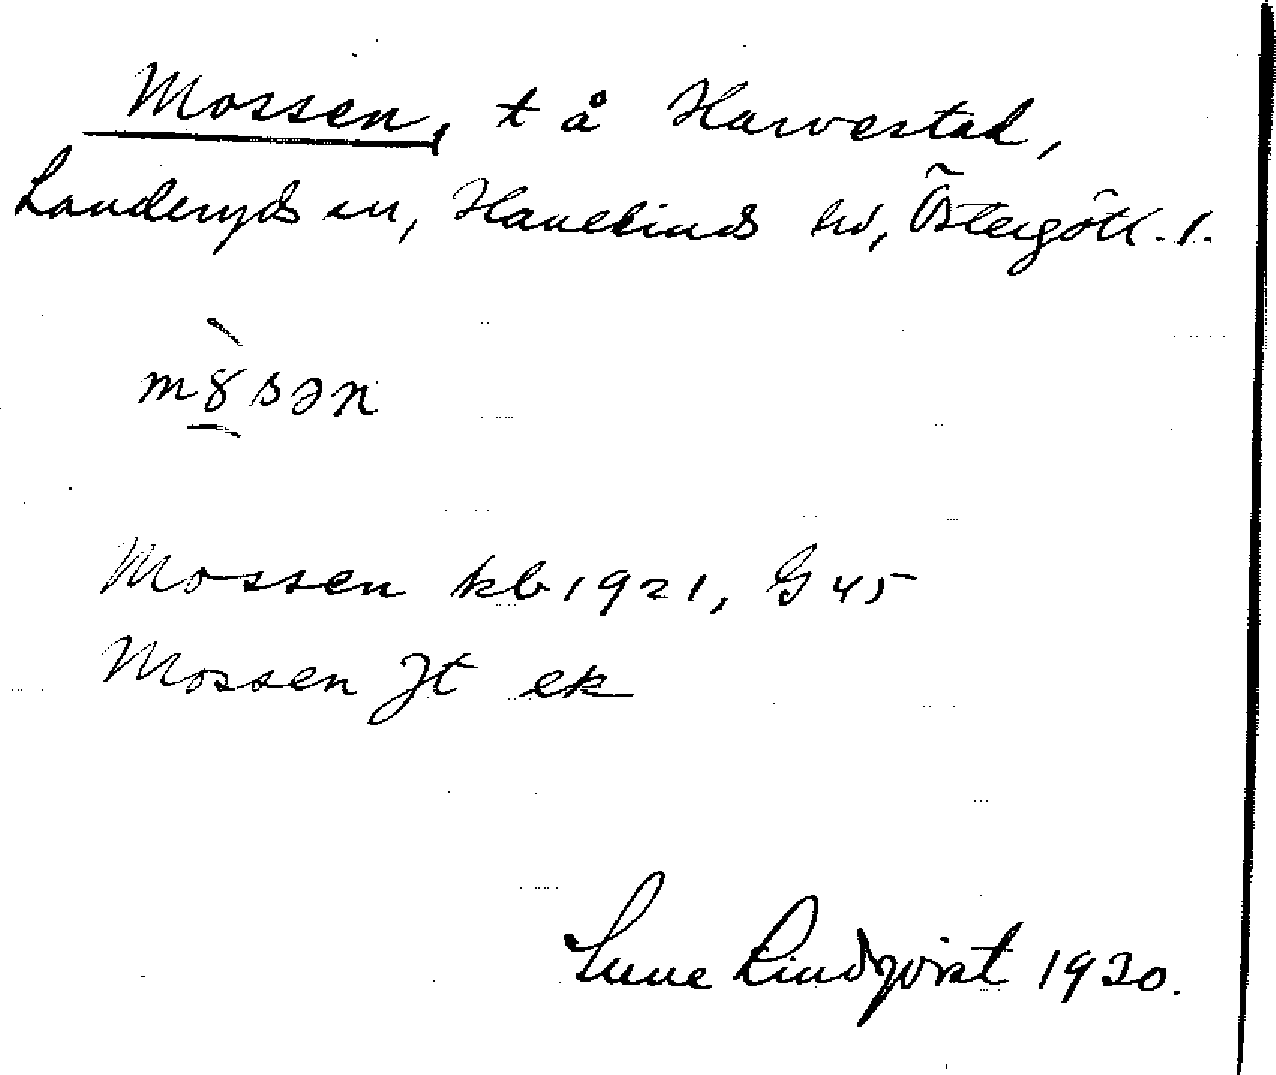 Mossen, t å Harvestad,
Landeryds sn, Hanekinds hd, Östergötl. l.
mò̲sən
Mossen kb 1921, G 45
Mossen Jt ek
Sune Lindqvist 1920.